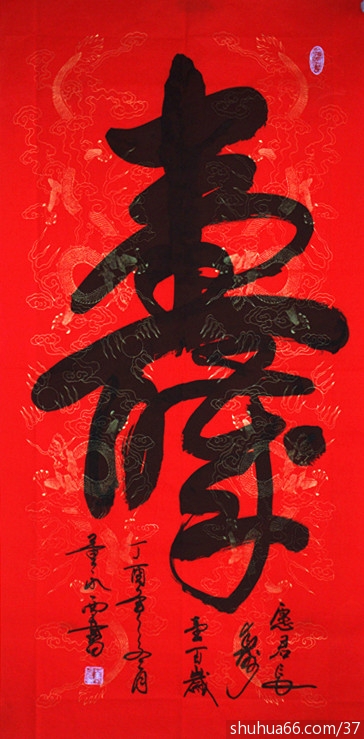 壽
愿君長
壽
壹百歲
丁酉年 月
董 西書
shuhua66.com/37